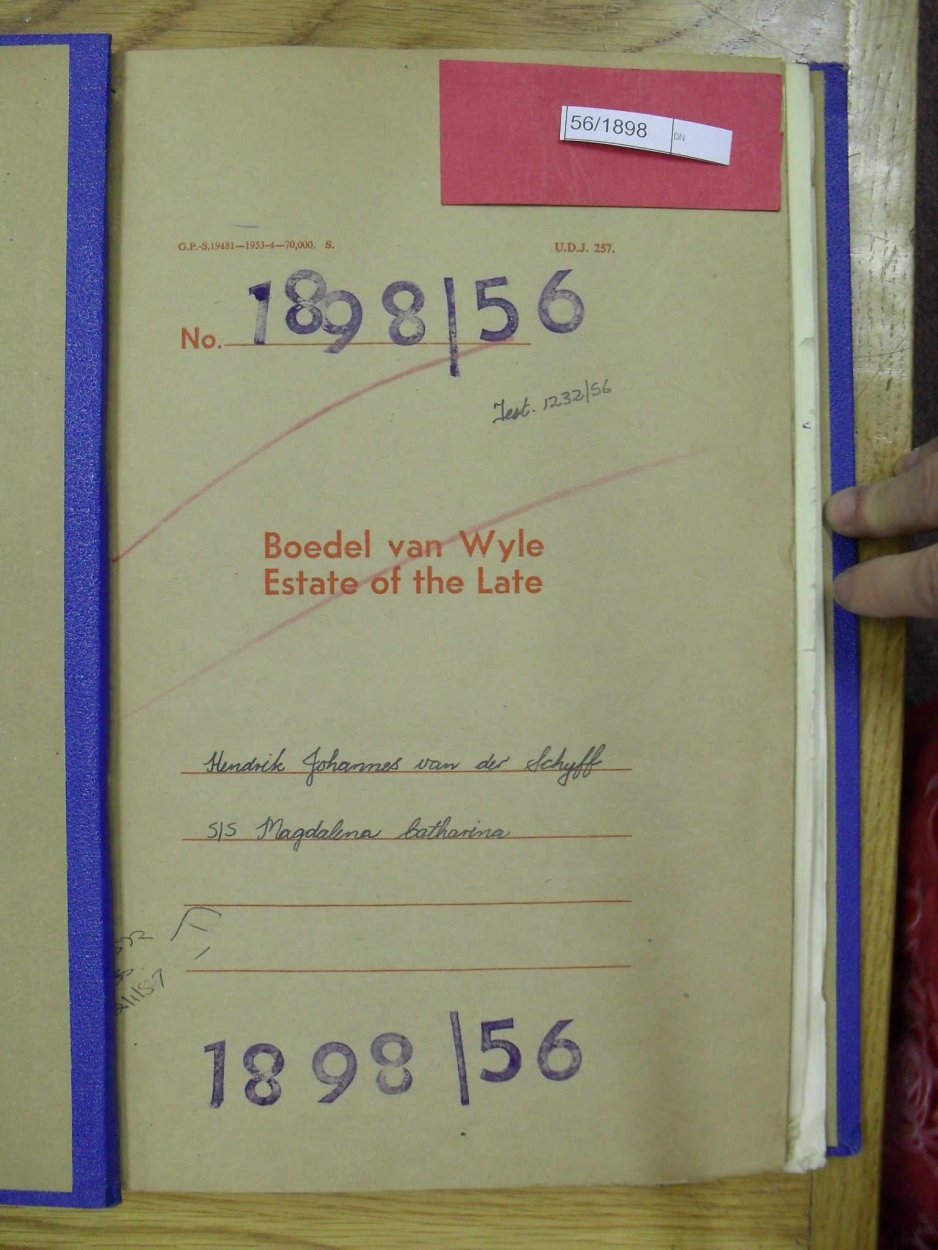 56/1898 DN
G.P.-S.19481—1953-4—70,000. S. U.D.J. 257.
No. 1898|56
Test. 1232/56
Boedel van Wyle
Estate of the Late
Hendrik Johannes van der Schyff
S/S Magdalena Catharina
1898|56